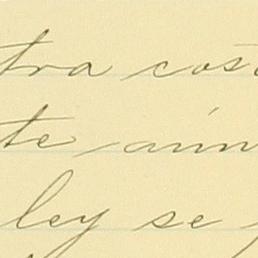 tra cost
te aún
ley se